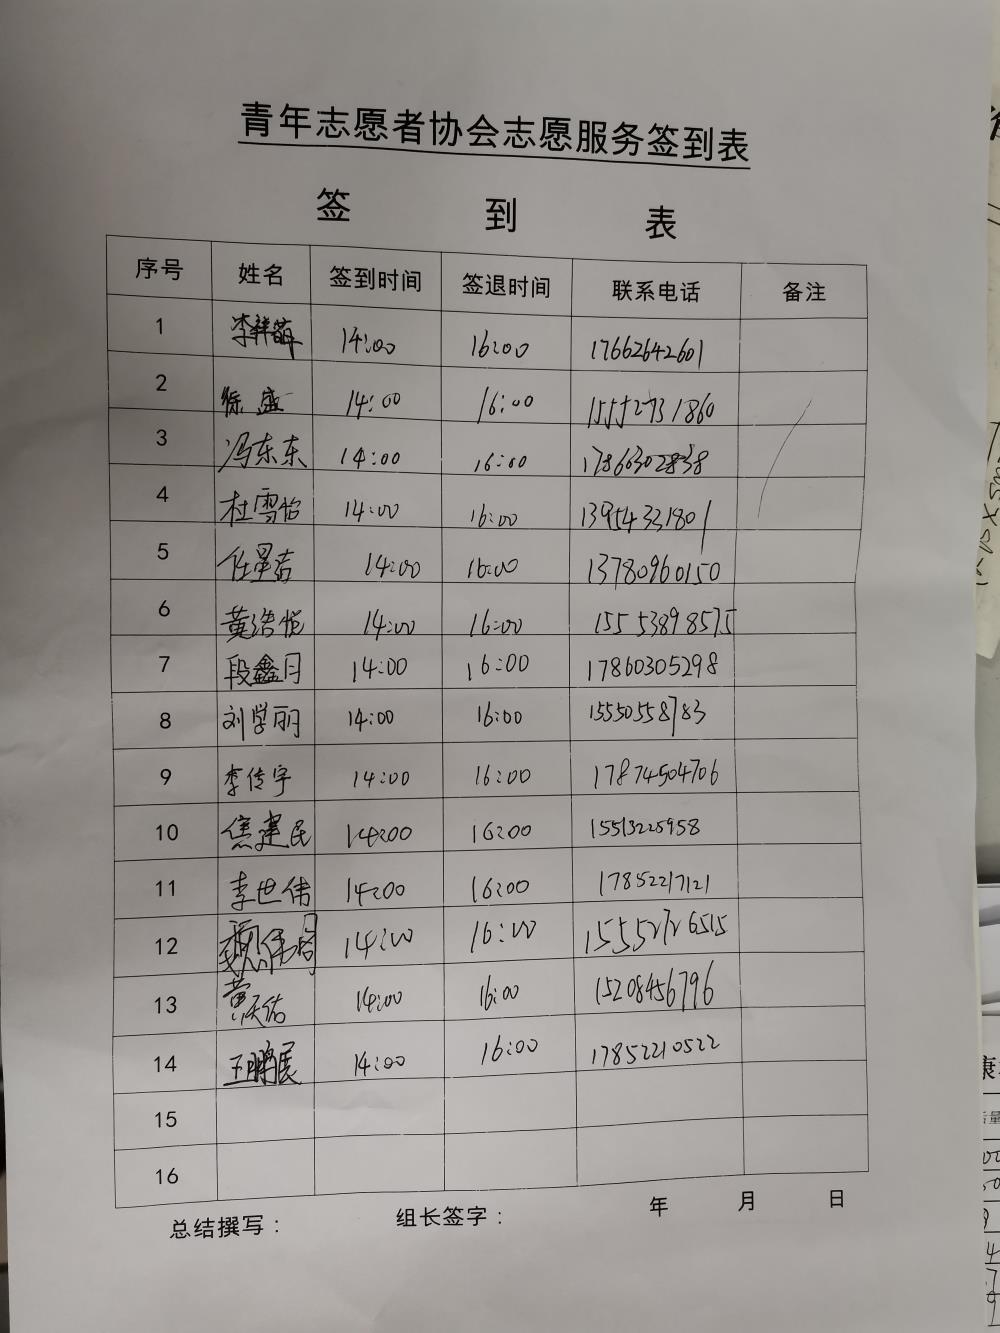 青年志愿者协会志愿服务签到表
签 到 表
序号 姓名 签到时间 签退时间 联系电话 备注
1 李祥萌 14:00 16:00 17662642601
2 徐盛 14:00 16:00 15552731860
3 冯东东 14:00 16:00 17860302838
4 杜雪怡 14:00 16:00 13954331801
5 任星吉 14:00 16:00 13780960150
6 黄浩恺 14:00 16:00 15553898575
7 段鑫月 14:00 16:00 17860305298
8 刘学丽 14:00 16:00 15550558783
9 李传宇 14:00 16:00 17874504706
10 焦建民 14:00 16:00 15513225958
11 李世伟 14:00 16:00 17852217121
12 14:00 16:00
13 黄天佑 14:00 16:00 15208456796
14 王鹏展 14:00 16:00 17852210522
15
16
总结撰写： 组长签字： 年 月 日